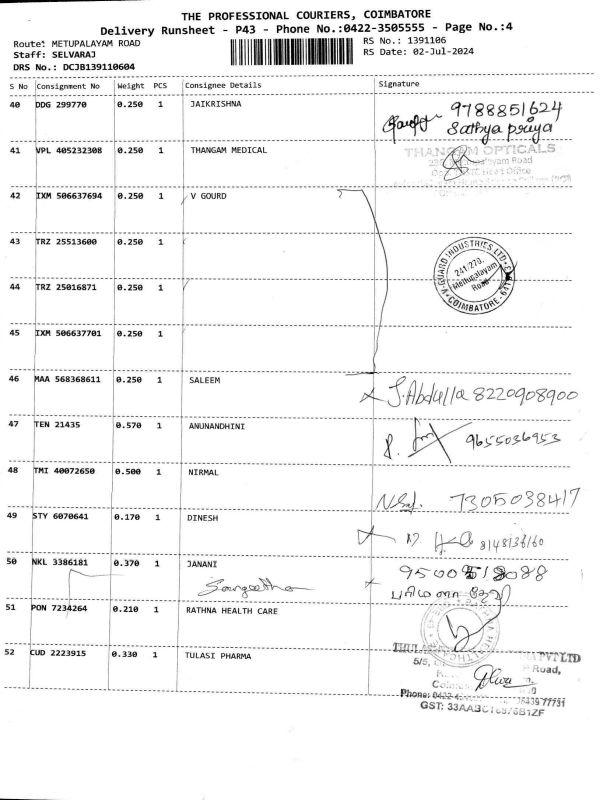 THE PROFESSIONAL COURIERS, COIMBATORE
Delivery Runsheet - P43 - Phone No.:0422-3505555 - Page No.:4
Route: METUPALAYAM ROAD
RS No.: 1391106
Staff: SELVARAJ
RS Date: 02-Jul-2024
DRS No.: DCJB139110604
S No Consignment No Weight PCS Consignee Details Signature
40 DDG 299770 0.250 1 JAIKRISHNA
9788851624
Sathya priya
41 VPL 405232308 0.250 1 THANGAM MEDICAL
THANGAM OPTICALS
42 IXM 506637694 0.250 1 V GOURD
43 TRZ 25513600 0.250 1
V-GUARD INDUSTRIES LTD
241/270,
Mettupalayam
Road
COIMBATORE-641
44 TRZ 25016871 0.250 1
45 IXM 506637701 0.250 1
46 MAA 568368611 0.250 1 SALEEM
J.Abdulla 8220908900
47 TEN 21435 0.570 1 ANUNANDHINI
9655036953
48 TMI 40072650 0.500 1 NIRMAL
7305038417
49 STY 6070641 0.170 1 DINESH
8148136160
50 NKL 3386181 0.370 1 JANANI
Sangeetha
51 PON 7234264 0.210 1 RATHNA HEALTH CARE
52 CUD 2223915 0.330 1 TULASI PHARMA
PVT LTD
Road,
Phone: 0422
77731
GST: